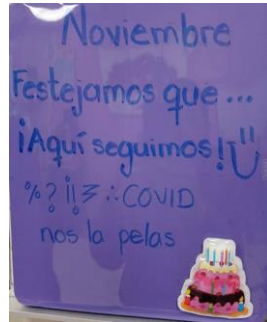 Noviembre
Festejamos que...
¡Aquí seguimos!
%?¡¡ ∴ COVID
nos la pelas